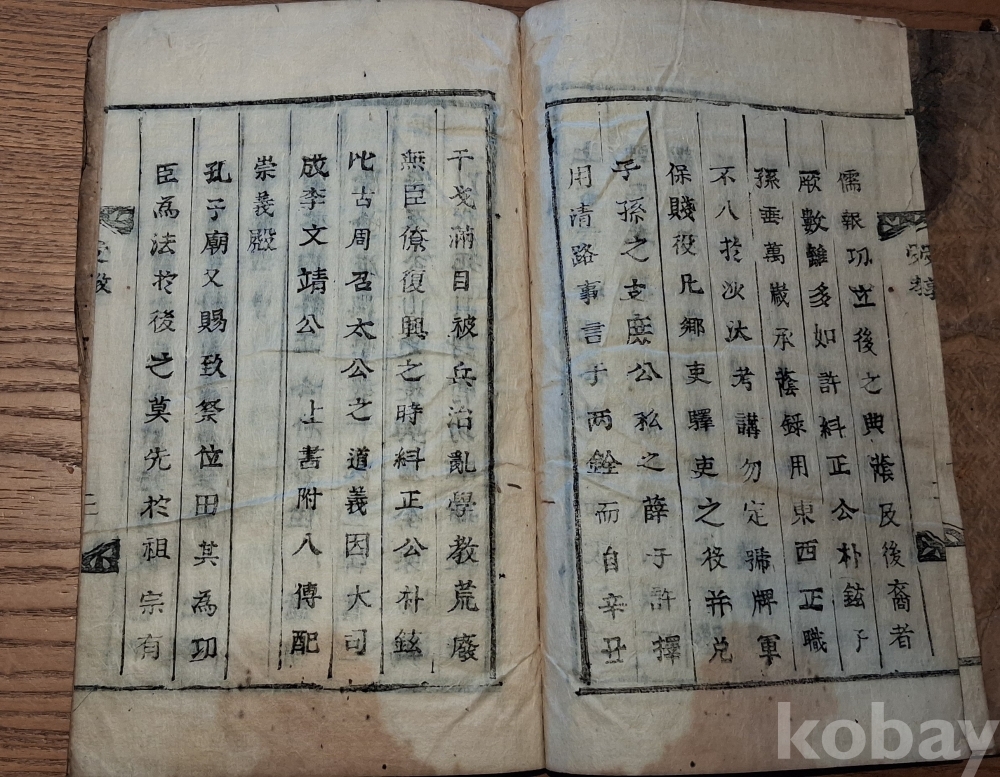 儒報功立後之典蔭及後裔者
厥數雖多如許糾正公朴鉉子
孫垂萬嵗承蔭錄用東西正職
不入於沙汰考講勿定號牌軍
保賤役凡鄉吏驛吏之役并兑
子孫之支庶公私之薛子許擇
用清路事言于两銓而自辛丑
干戈滿目被兵治亂學教荒廢
無臣僚復興之時糾正公朴鉉
比古周召太公之道義因大司
成李文靖公上書附入傳配
崇義殿
孔子廟又賜致祭位田其為功
臣為法於後之莫先於祖宗有
受教
二
kobay